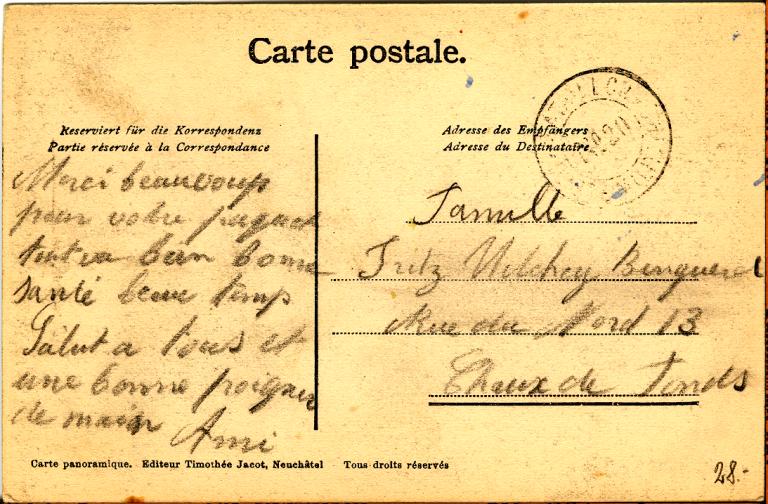 Carte postale.
Reserviert für die Korrespondenz
Partie réservée à la Correspondance
Adresse des Empfängers
Adresse du Destinataire
Merci beaucoup
pour votre paquet
tout va bien bonne
santé beau temps
Salut a tous et
une bonne poignée
de main Ami
Famille
Fritz
Rue du Nord 13
Chaux de Fonds
Carte panoramique. Editeur Timothée Jacot, Neuchâtel Tous droits réservés
28.-